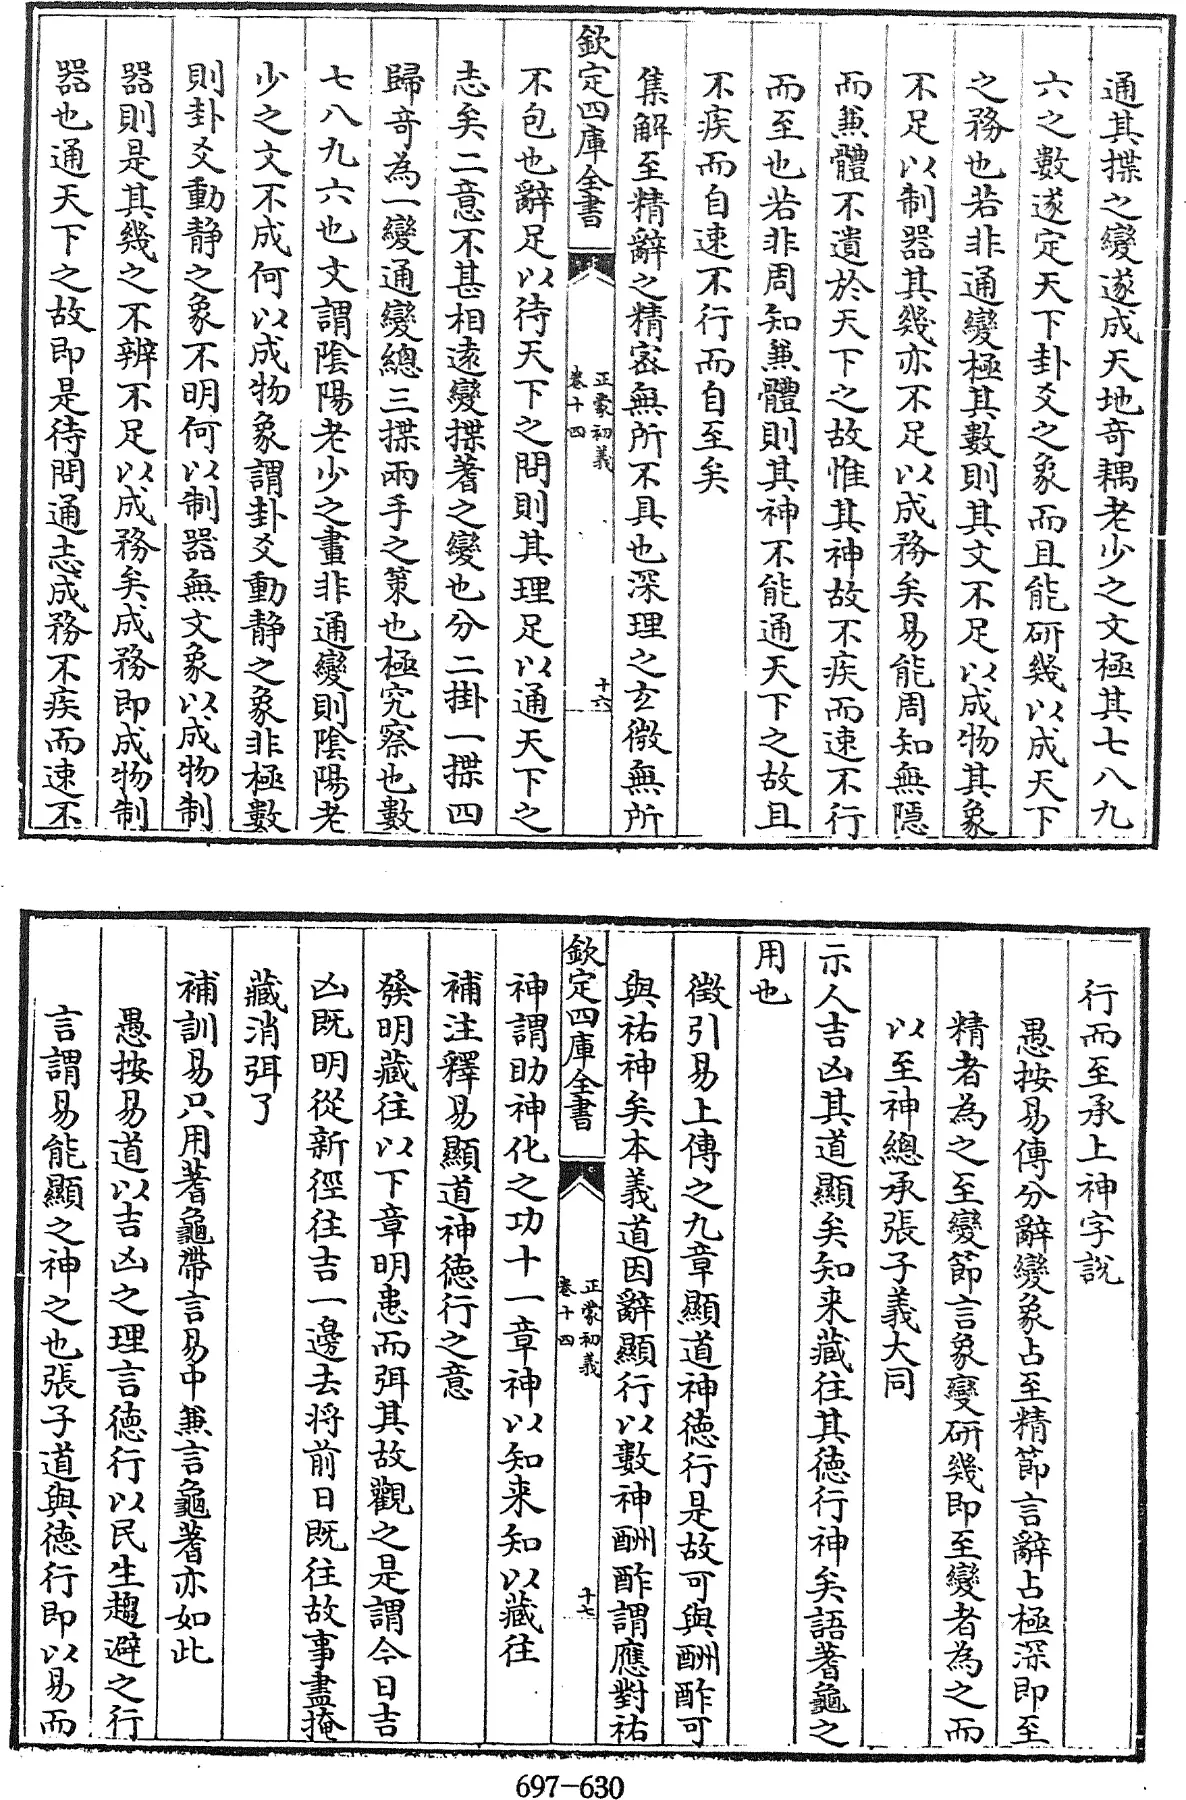 通其揲之變遂成天地奇耦老少之文極其七八九
六之數遂定天下卦爻之象而且能研幾以成天下
之務也若非通變極其數則其文不足以成物其象
不足以制器其幾亦不足以成務矣易能周知無隱
而兼體不遺於天下之故惟其神故不疾而速不行
而至也若非周知兼體則其神不能通天下之故且
不疾而自速不行而自至矣
集解至精辭之精宻無所不具也深理之玄微無所
欽定四庫全書
正蒙初義
卷十四
十六
不包也辭足以待天下之問則其理足以通天下之
志矣二意不甚相遠變揲蓍之變也分二掛一揲四
歸奇為一變通變總三揲兩手之策也極究察也數
七八九六也文謂陰陽老少之畫非通變則陰陽老
少之文不成何以成物象謂卦爻動靜之象非極數
則卦爻動靜之象不明何以制器無文象以成物制
器則是其幾之不辨不足以成務矣成務即成物制
器也通天下之故即是待問通志成務不疾而速不
行而至承上神字說
愚按易傳分辭變象占至精節言辭占極深即至
精者為之至變節言象變研幾即至變者為之而
以至神總承張子義大同
示人吉凶其道顯矣知来藏往其德行神矣語蓍龜之
用也
徵引易上傳之九章顯道神德行是故可與酬酢可
與祐神矣本義道因辭顯行以數神酬酢謂應對祐
欽定四庫全書
正蒙初義
卷十四
十七
神謂助神化之功十一章神以知来知以藏往
補注釋易顯道神德行之意
發明藏往以下章明患而弭其故觀之是謂今日吉
凶既明從新徑往吉一邊去将前日既往故事盡掩
藏消弭了
補訓易只用蓍龜帶言易中兼言龜蓍亦如此
愚按易道以吉凶之理言德行以民生趨避之行
言謂易能顯之神之也張子道與德行即以易而
697-630